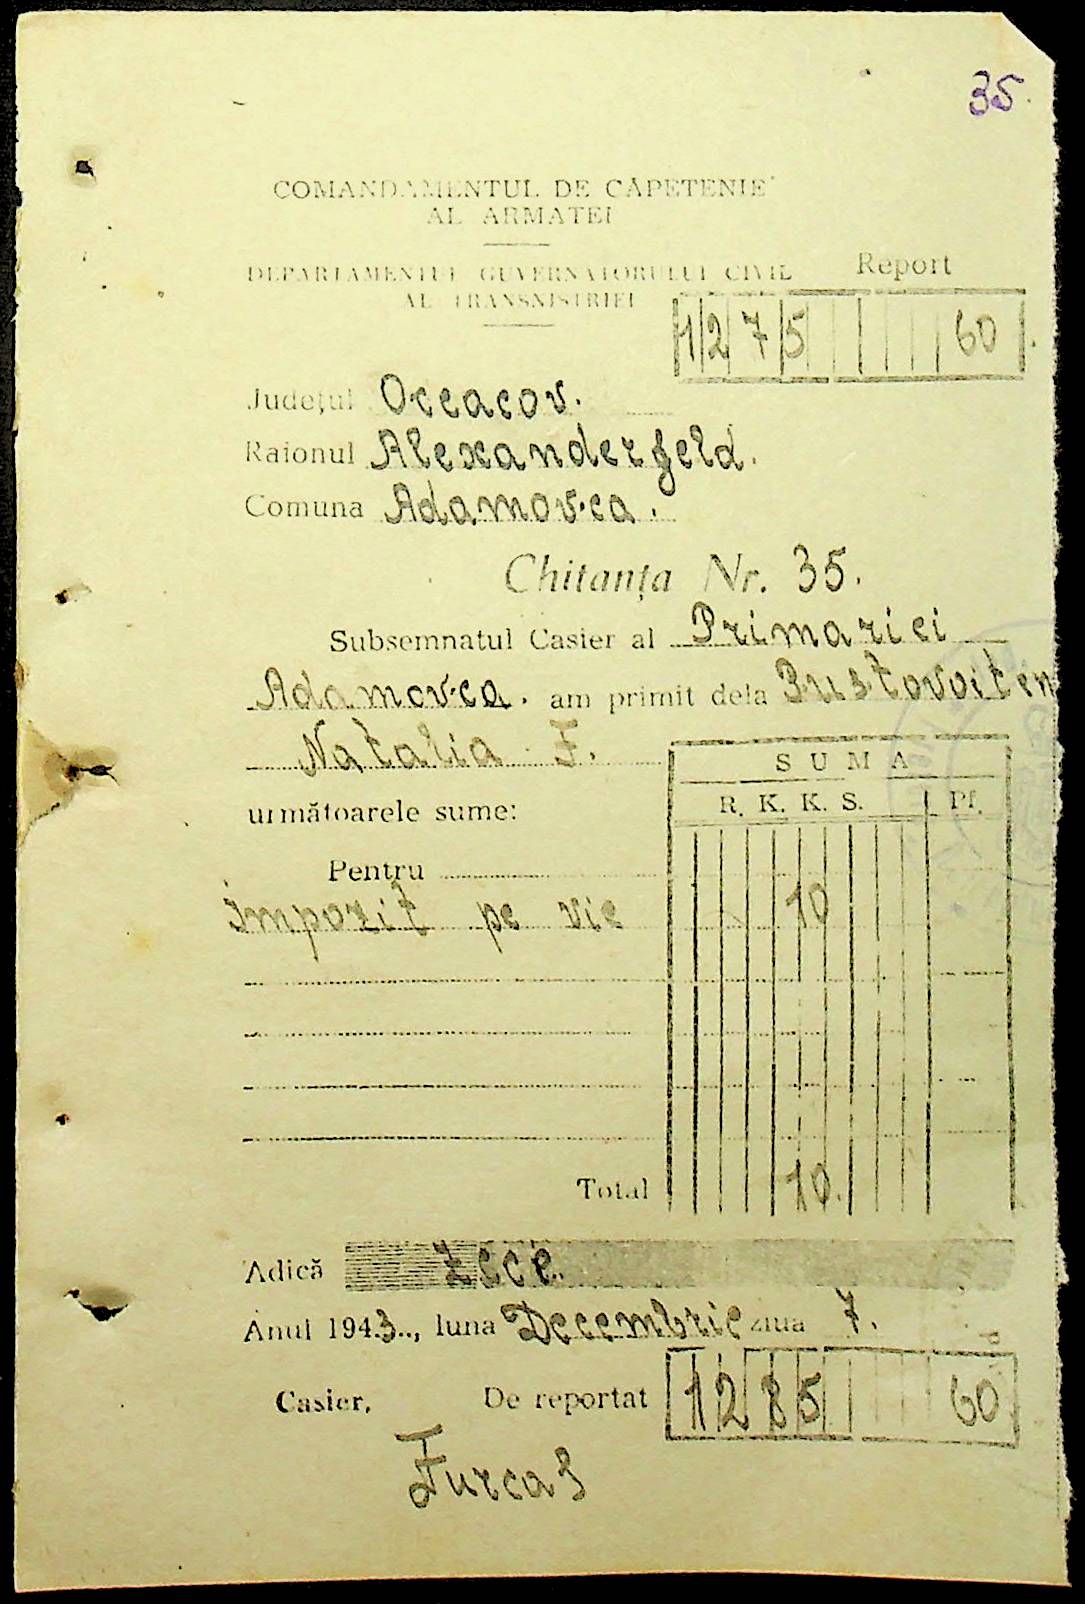 35.
COMANDAMENTUL DE CAPETENIE
AL ARMATEI
DEPARTAMENTUL GUVERNATORULUI CIVIL
AL TRANSNISTRIEI
Report
1275 60
Județul Oceacov.
Raionul Alexanderfeld.
Comuna Adamovca.
Chitanța Nr. 35.
Subsemnatul Casier al Primariei
Adamovca. am primit dela Pustovoiten
Natalia F.
următoarele sume:
SUMA
R. K. K. S. Pf.
Pentru
impozit pe vie 10
Total 10.
Adică Zece.
Anul 1943.., luna Decembrie ziua 7.
Casier, De reportat 1285 60
Furcas